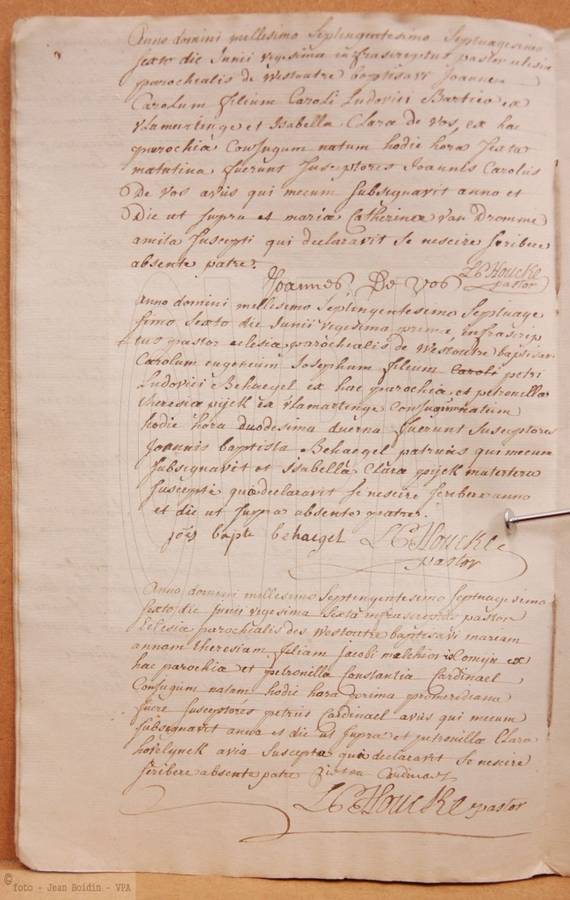 Anno domini millesimo Septingentesimo Septuagesimo
sexto die Junii vigesima infrascriptus pastor eclesia
parochialis de Westoutre baptisavi Joannem
Carolum filium Caroli Ludovici Bartier ex
vlamertinge et Isabella Clara de vos, ex hac
parochia Conjugum natum hodie hora sexta
matutina fuerunt Susceptores Joannis Carolus
De vos avus qui mecum subsignavit anno et
Die ut supra et maria Catherina van Dromme
amita Suscepti qui declaravit se nescire scribere
absente patre.
Joannes De Vos
LC Houcke
pastor
Anno domini millesimo Septingentesimo Septuage
simo Sexto die Junii vigesima prima, infrascrip
tus pastor eclesia parochialis de Westoutre baptisavi
Carolum eugenium Josephum filium Caroli petri
Ludovici Behaegel ex hac parochia et petronilla
theresia pijck ex vlamertinge Conjugum natum
hodie hora duodesima fuerunt Susceptores
Joannis baptista Behaegel patruus qui mecum
subsignavit et Isabella Clara pijck matertera
suscepti qua declaravit se nescire scribere anno
et die ut supra absente patre.
jõis bapte behaegel
LC Houcke
pastor
Anno domini millesimo Septingentesimo Septuagesimo
sexto die Junii vigesima sexta infrascriptus pastor
Eclesia parochialis des Westoutre baptesavi mariam
annam theresiam filiam Jacobi melchioris Comijn ex
hac parochia et petronilla Constantia Cardinael
Conjugum natam hodie hora prima promeridiana
fuere susceptores petrus Cardinael avus qui mecum
subsignavit anno et die ut supra et petronilla Clara
avia suscepta qua declaravit se nescire
scribere absente patre
LC Houcke pastor
© foto - Jean Boidin - VPA